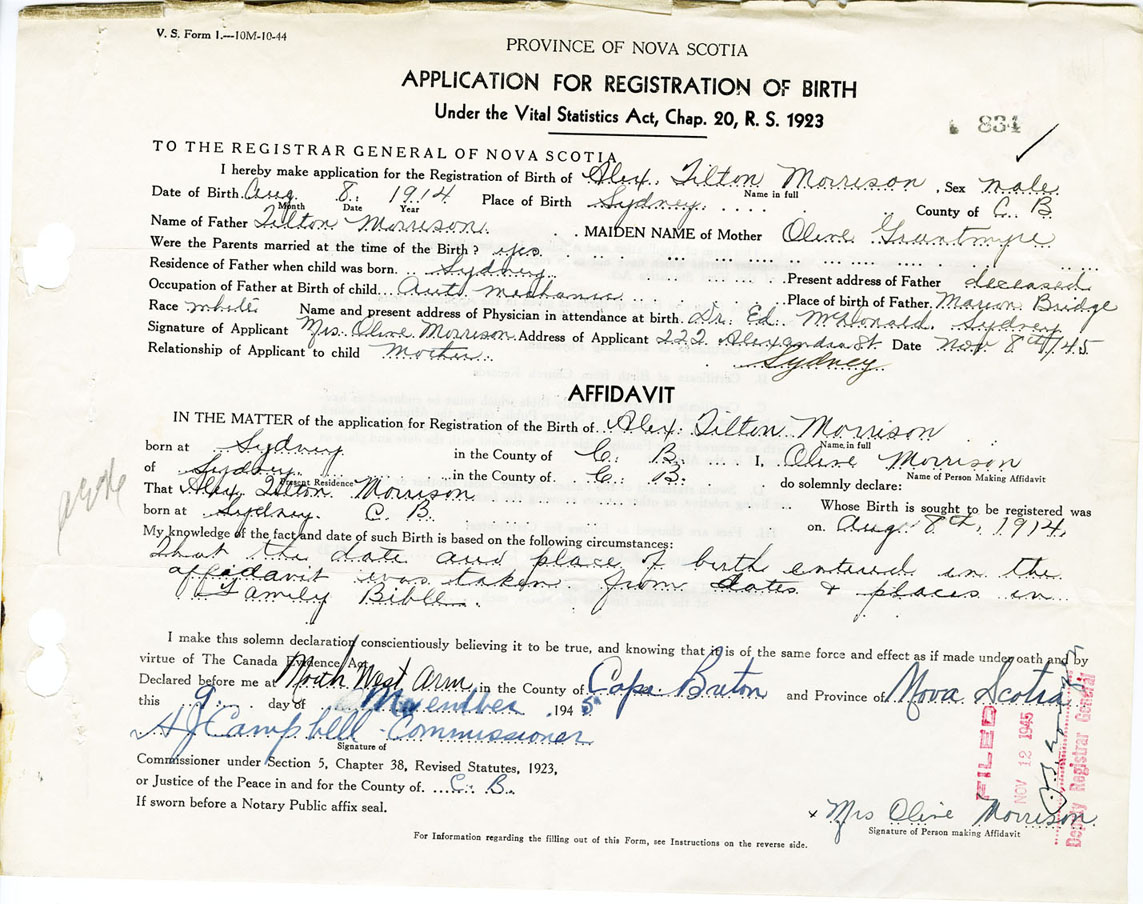 V. S. Form 1.—10M-10-44
PROVINCE OF NOVA SCOTIA
APPLICATION FOR REGISTRATION OF BIRTH
Under the Vital Statistics Act, Chap. 20, R. S. 1923
834
TO THE REGISTRAR GENERAL OF NOVA SCOTIA
I hereby make application for the Registration of Birth of Alex. Tilton Morrison, Sex male.
Name in full
Date of Birth Aug. 8. 1914 Place of Birth Sydney. County of C. B.
Month Date Year
Name of Father Tilton Morrison. MAIDEN NAME of Mother Olive
Were the Parents married at the time of the Birth? yes.
Residence of Father when child was born. Sydney Present address of Father deceased
Occupation of Father at Birth of child. Auto mechanic Place of birth of Father. Marion Bridge
Race white Name and present address of Physician in attendance at birth. Dr. Ed. McDonald. Sydney
Signature of Applicant Mrs. Olive Morrison Address of Applicant 222 Alexandra St. Date Nov 8th/45
Relationship of Applicant to child Mother. Sydney
AFFIDAVIT
IN THE MATTER of the application for Registration of the Birth of Alex. Tilton Morrison
Name in full
born at Sydney in the County of C. B. I, Olive Morrison
Name of Person Making Affidavit
of Sydney in the County of C. B. do solemnly declare:
Present Residence
That Alex Tilton Morrison Whose Birth is sought to be registered was
born at Sydney. C. B. on Aug. 8th, 1914.
My knowledge of the fact and date of such Birth is based on the following circumstances:
That the date and place of birth entered in the
affidavit was taken from dates & places in
Family Bible.
I make this solemn declaration conscientiously believing it to be true, and knowing that it is of the same force and effect as if made under oath and by
virtue of The Canada Evidence Act.
Declared before me at North West Arm in the County of Cape Breton and Province of Nova Scotia
this 9 day of November, 1945
A J Campbell Commissioner
Signature of
Commissioner under Section 5, Chapter 38, Revised Statutes, 1923,
or Justice of the Peace in and for the County of C. B.
If sworn before a Notary Public affix seal.
FILED
NOV 12 1945
Deputy Registrar General
x Mrs Olive Morrison
Signature of Person making Affidavit
For Information regarding the filling out of this Form, see Instructions on the reverse side.